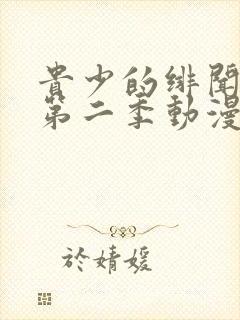 貴少的緋聞
第二季動漫
於婧媛